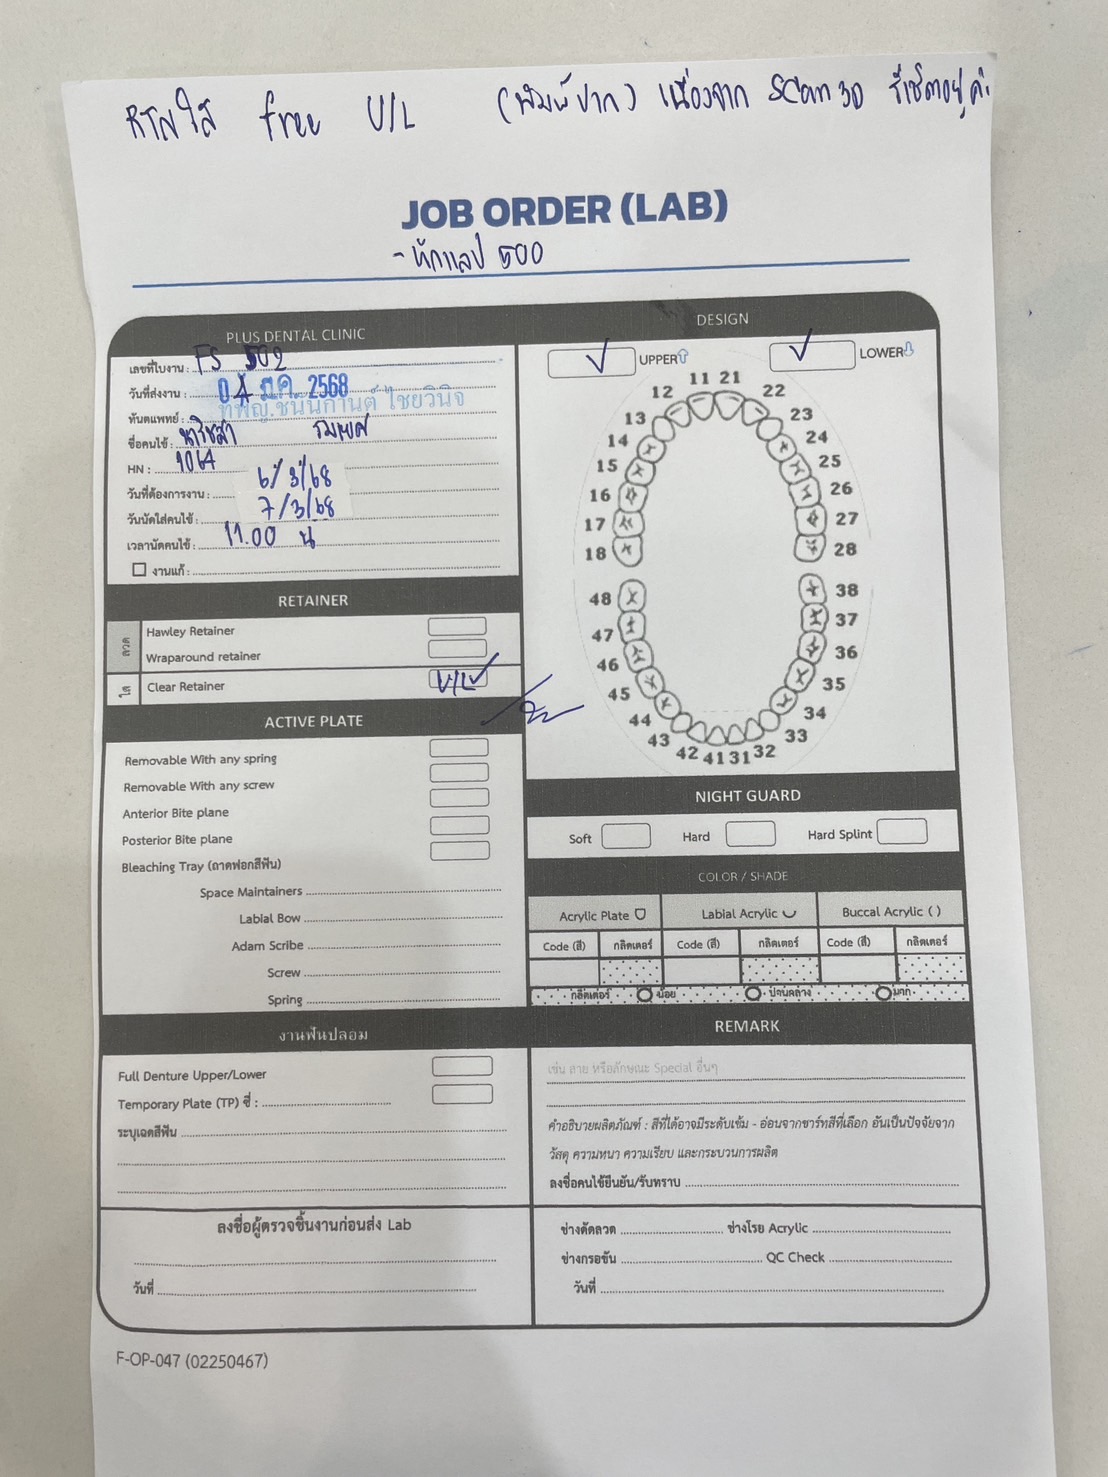 รีเทนใส free U/L (พิมพ์ปาก) เนื่องจาก Scan 3D รีเซ็ตอยู่ค่ะ
JOB ORDER (LAB)
- หักแลป 500
PLUS DENTAL CLINIC
เลขที่ใบงาน : FS 502
วันที่ส่งงาน : 04 มี.ค. 2568
ทันตแพทย์ : ทพญ.ชนนิกานต์ ไชยวินิจ
ชื่อคนไข้ : นาริชสา
HN : 1064
วันที่ต้องการงาน : 6/3/68
วันนัดใส่คนไข้ : 7/3/68
เวลานัดคนไข้ : 11.00 น
งานแก้ :
RETAINER
ลวด
Hawley Retainer
Wraparound retainer
ใส
Clear Retainer U/L
ACTIVE PLATE
Removable With any spring
Removable With any screw
Anterior Bite plane
Posterior Bite plane
Bleaching Tray (ถาดฟอกสีฟัน)
Space Maintainers
Labial Bow
Adam Scribe
Screw
Spring
งานฟันปลอม
Full Denture Upper/Lower
Temporary Plate (TP) ซี่ :
ระบุเฉดสีฟัน
ลงชื่อผู้ตรวจชิ้นงานก่อนส่ง Lab
วันที่
DESIGN
UPPER LOWER
11 21
12 22
13 23
14 24
15 25
16 26
17 27
18 28
48 38
47 37
46 36
45 35
44 34
43 33
42 41 31 32
NIGHT GUARD
Soft Hard Hard Splint
COLOR / SHADE
Acrylic Plate Labial Acrylic Buccal Acrylic ( )
Code (สี) กลิตเตอร์ Code (สี) กลิตเตอร์ Code (สี) กลิตเตอร์
กลิตเตอร์ น้อย ปานกลาง มาก
REMARK
เช่น ลาย หรือลักษณะ Special อื่นๆ
คำอธิบายผลิตภัณฑ์ : สีที่ได้อาจมีระดับเข้ม - อ่อนจากชาร์ทสีที่เลือก อันเป็นปัจจัยจาก
วัสดุ ความหนา ความเรียบ และกระบวนการผลิต
ลงชื่อคนไข้ยืนยัน/รับทราบ
ช่างดัดลวด ช่างโรย Acrylic
ช่างกรอขัน QC Check
วันที่
F-OP-047 (02250467)